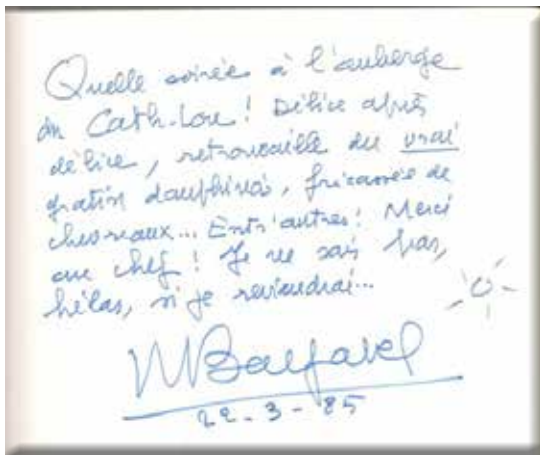 Quelle soirée à l'auberge
du Cath-Lou ! Délice après
délice, retrouvaille du vrai
gratin dauphinois, fricassée de
chevreaux... Entr'autres ! Merci
au chef ! Je ne sais pas,
hélas, si je reviendrai...
22-3-85